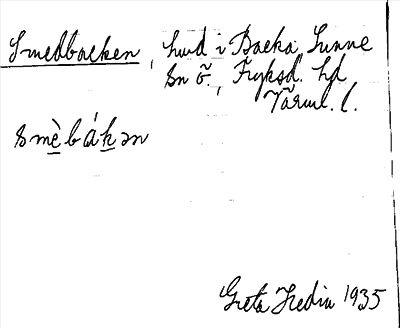 Smedbacken, hmd i Backa, Sunne
sn ö., Fryksd. hd
Värml. l.
smè̱bákən
Greta Hedin 1935